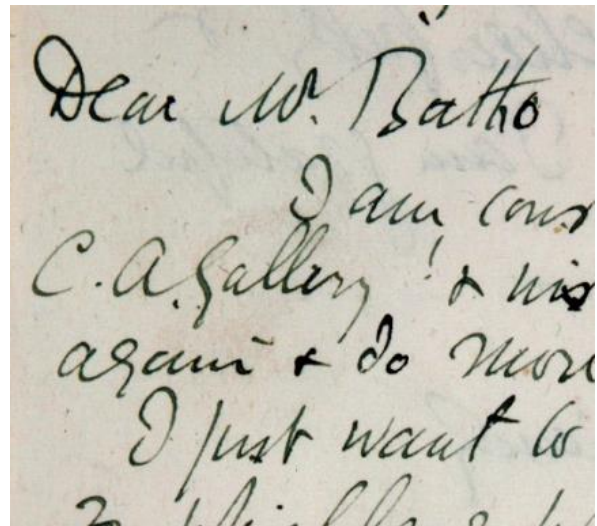 Dear Mr. Batho
I am cons
C. A. Gallery ! & wis
again & do more
I just want to